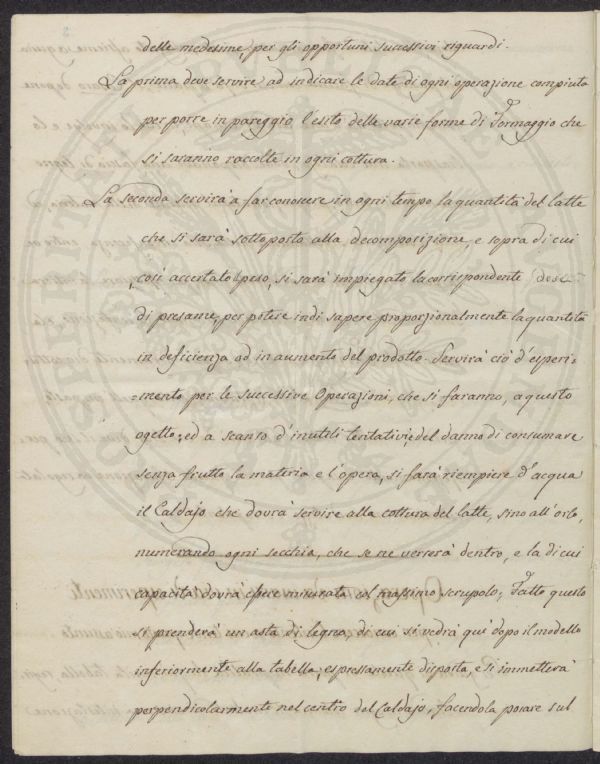 delle medesime, per gli opportuni successivi riguardi.
La prima deve servire ad indicare le date di ogni operazione compiuta
per porre in pareggio l'esito delle varie forme di Formaggio che
si saranno raccolte in ogni cottura.
La seconda servirà a far conoscere in ogni tempo la quantità del latte
che si sarà sottoposto alla decomposizione, e sopra di cui
così accertato il peso, si sarà impiegato la corrispondente dose
di presame, per potere indi sapere proporzionalmente la quantità
in deficienza od in aumento del prodotto. Servirà ciò d'esperi-
=mento per le successive Operazioni, che si faranno, a questo
ogetto; ed a scanso d'inutili tentativi, e del danno di consumare
senza frutto la materia e l'opera, si farà riempiere d'acqua
il Caldajo che dovrà servire alla cottura del latte, sino all'orlo,
numerando ogni secchia, che se ne verserà dentro, e la di cui
capacità dovrà essere misurata col massimo scrupolo; Fatto questo
si prenderà un'asta di legno, di cui si vedrà qui dopo il modello
inferiormente alla tabella, espressamente disposta, e si immetterà
perpendicolarmente nel centro del Caldajo, facendola posare sul